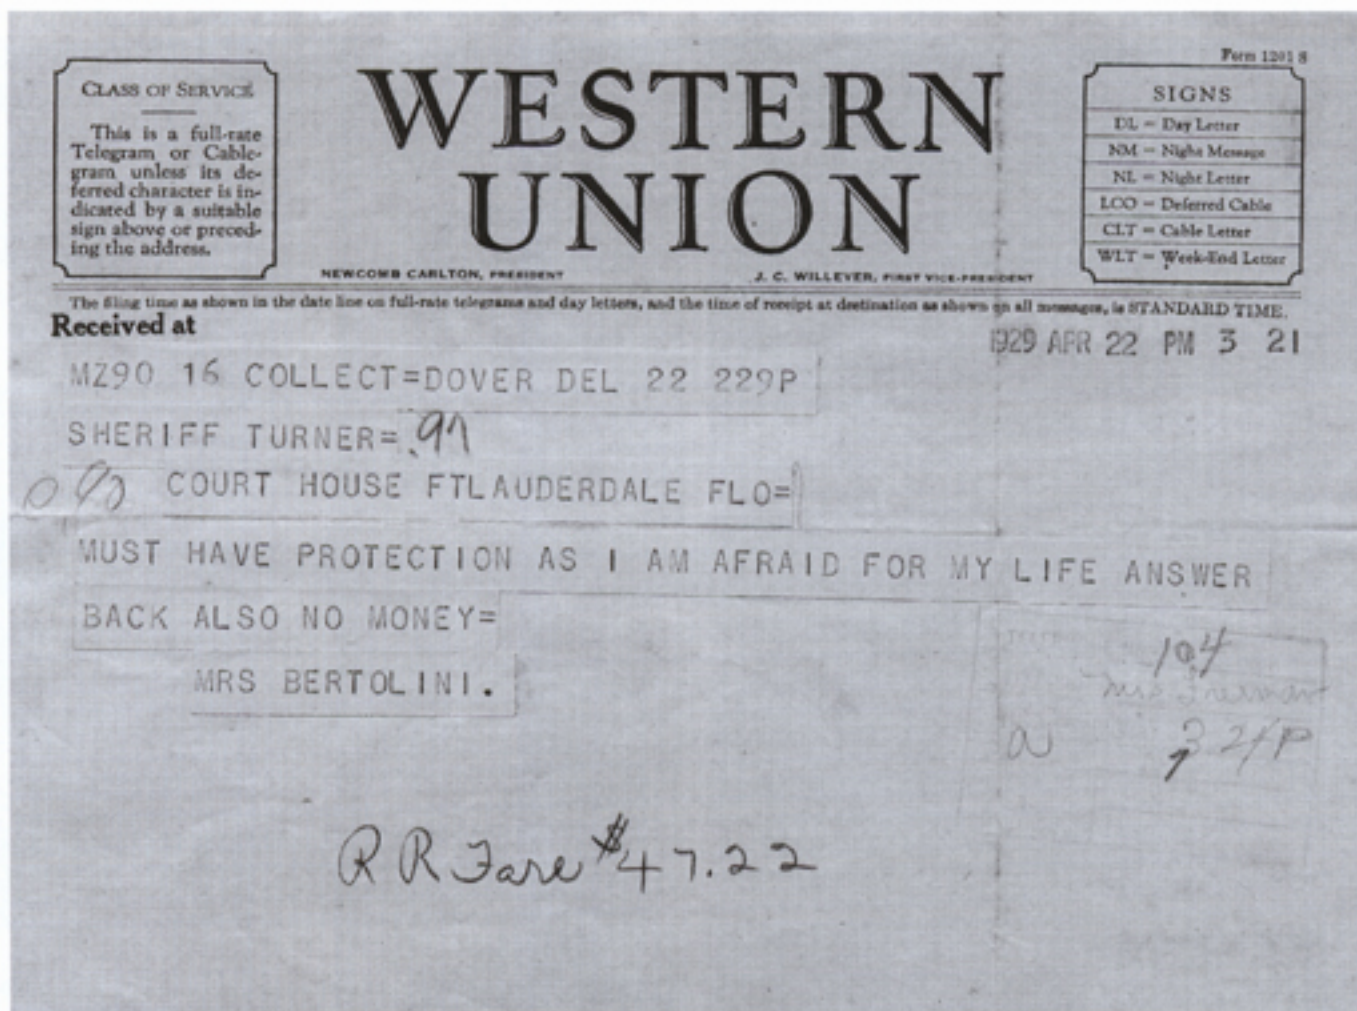 Form 1201 S
CLASS OF SERVICE
This is a full-rate
Telegram or Cable-
gram unless its de-
ferred character is in-
dicated by a suitable
sign above or preced-
ing the address.
WESTERN
UNION
NEWCOMB CARLTON, PRESIDENT
J. C. WILLEVER, FIRST VICE-PRESIDENT
SIGNS
DL = Day Letter
NM = Night Message
NL = Night Letter
LCO = Deferred Cable
CLT = Cable Letter
WLT = Week-End Letter
The filing time as shown in the date line on full-rate telegrams and day letters, and the time of receipt at destination as shown on all messages, is STANDARD TIME.
Received at
1929 APR 22 PM 3 21
MZ90 16 COLLECT=DOVER DEL 22 229P
SHERIFF TURNER= .97
COURT HOUSE FTLAUDERDALE FLO=
MUST HAVE PROTECTION AS I AM AFRAID FOR MY LIFE ANSWER
BACK ALSO NO MONEY=
MRS BERTOLINI.
104
R R Fare $47.22